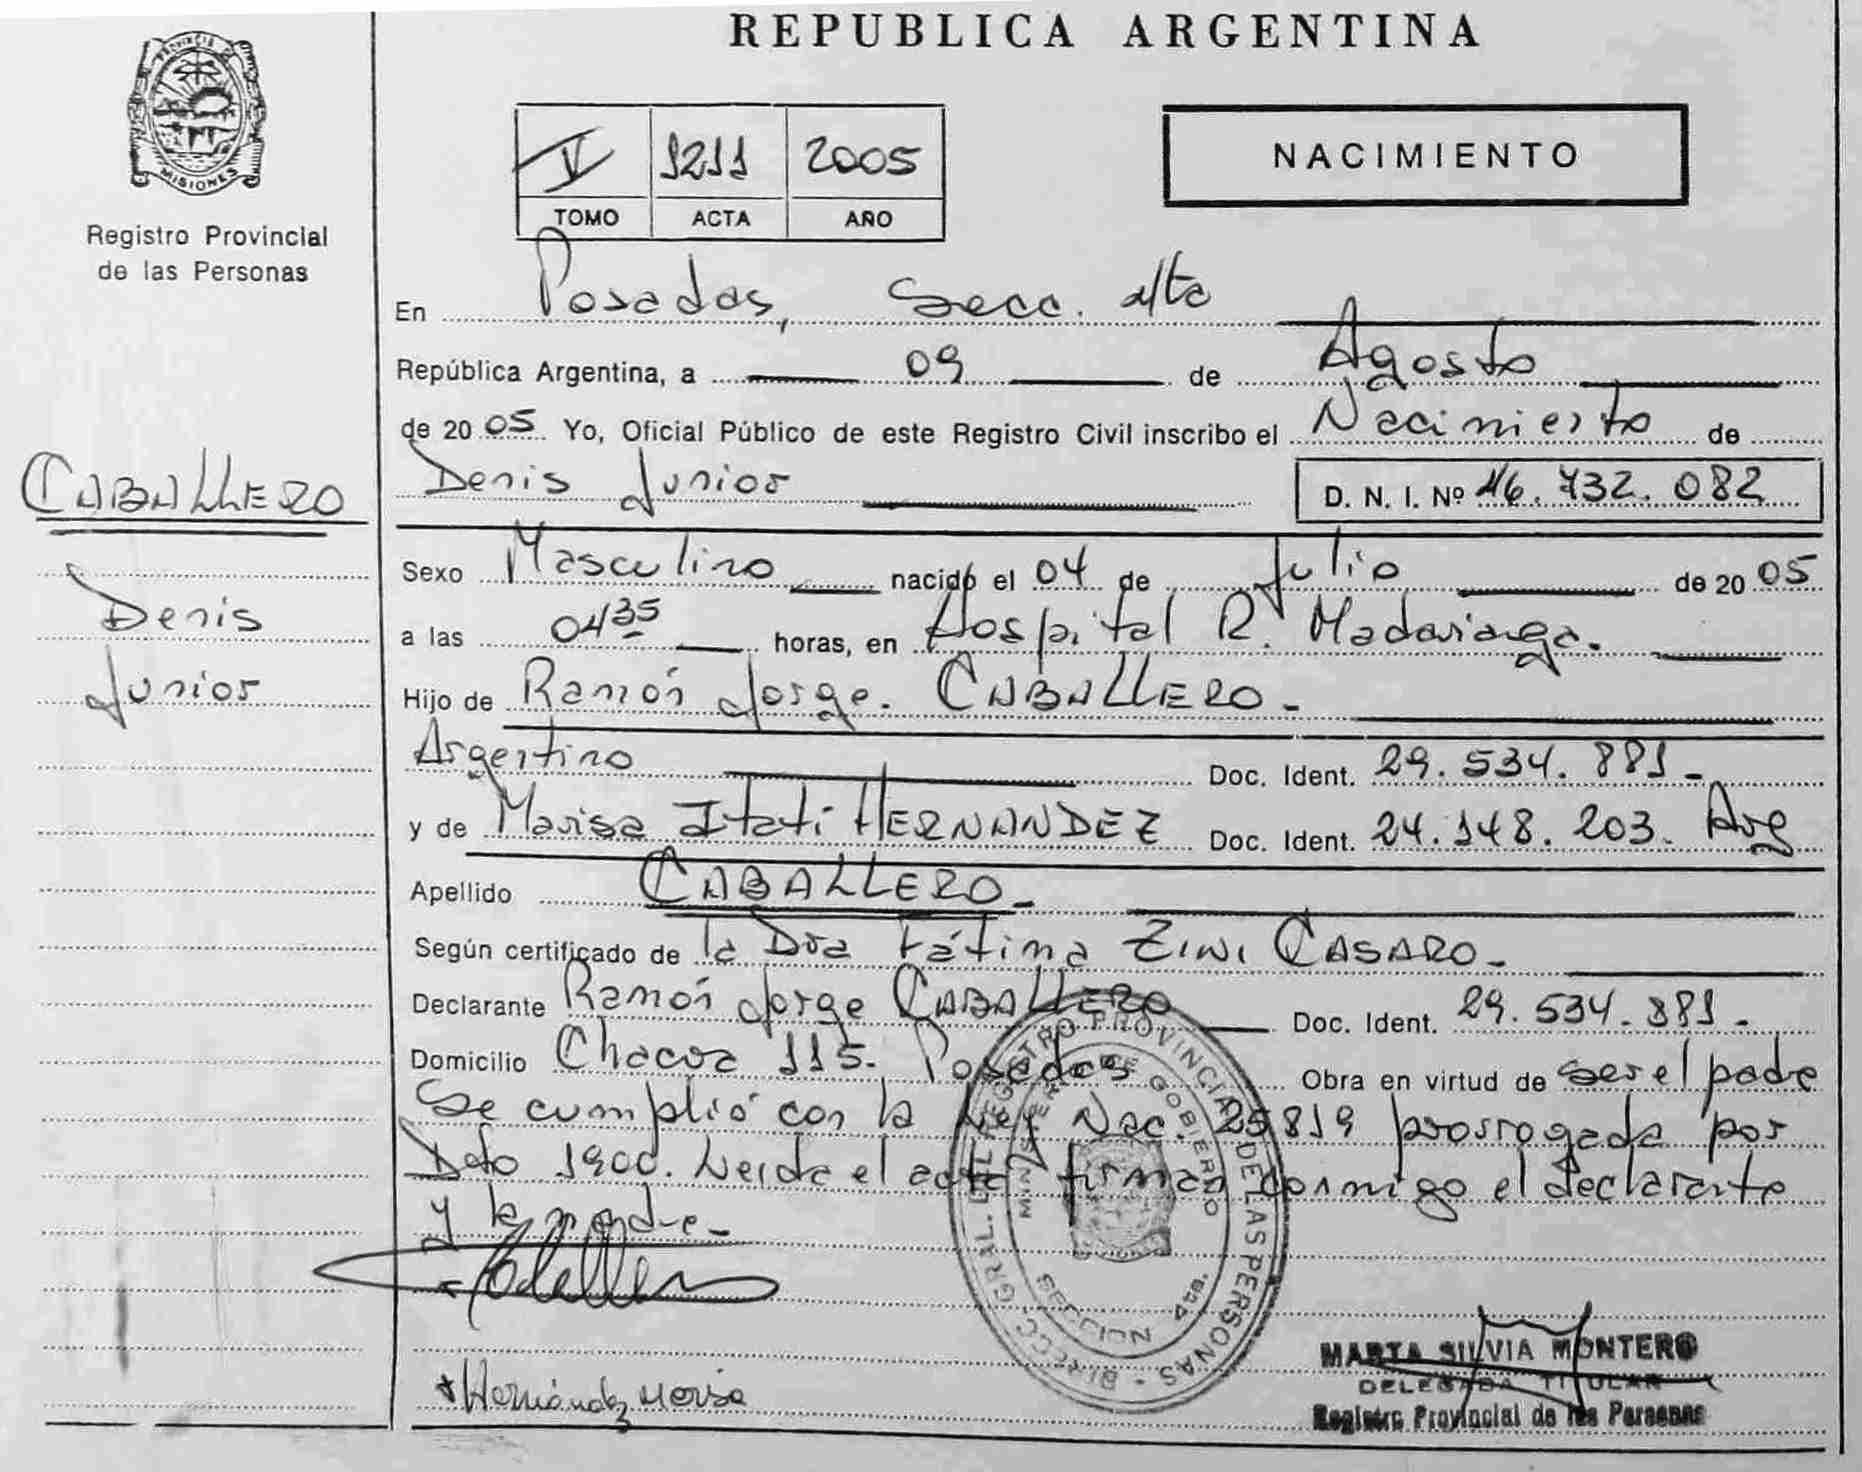 PROVINCIA DE
MISIONES
Registro Provincial
de las Personas
CABALLERO
Denis
Junior
REPUBLICA ARGENTINA
V 1211 2005
TOMO ACTA AÑO
NACIMIENTO
En Posadas, Secc. 4ta
República Argentina, a 09 de Agosto
de 2005 Yo, Oficial Público de este Registro Civil inscribo el Nacimiento de
Denis Junior D. N. I. Nº 46.732.082
Sexo Masculino nacido el 04 de Julio de 2005
a las 04 35 horas, en Hospital R. Madariaga.
Hijo de Ramón Jorge. CABALLERO.-
Argentino Doc. Ident. 29.534.881-
y de Marisa Itati HERNANDEZ Doc. Ident. 24.148.203. Arg
Apellido CABALLERO-
Según certificado de la Dra Fátima ZINI CASARO-
Declarante Ramón Jorge CABALLERO Doc. Ident. 29.534.881-
Domicilio Chacra 115. Posadas Obra en virtud de ser el padre
Se cumplió con la Ley Nac. 25819 prorrogada por
Dto 1900. Leida el acta firman conmigo el declarante
y la madre-
DIRECC. GRAL. DEL REGISTRO PROVINCIAL DE LAS PERSONAS
MINISTERIO DE GOBIERNO
SECCION 4ta.
Hernández Marisa
MARTA SILVIA MONTERO
DELEGADA TITULAR
Registro Provincial de las Personas